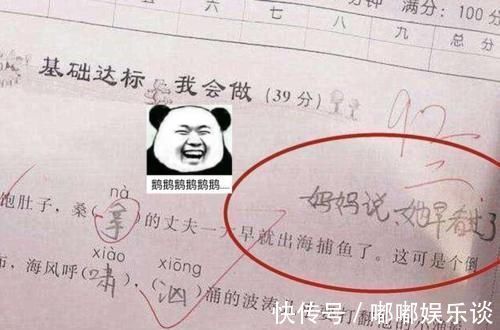 钟 满分：100 分
七 八 九 总分
基础达标 我会做（39 分）
92
妈妈说，她早看过了
鹅鹅鹅鹅鹅鹅....
nà
肚子，桑（ ）的丈夫一大早就出海捕鱼了。这可是个倒
xiào xiōng
，海风呼（啸），（汹）涌的波涛
快传号/嘟嘟娱乐谈